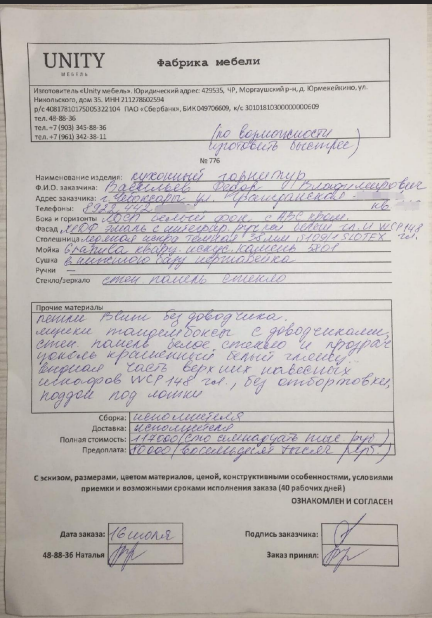 UNITY
МЕБЕЛЬ
Фабрика мебели
Изготовитель «Unity мебель». Юридический адрес: 429535, ЧР, Моргаушский р-н, д. Юрмекейкино, ул.
Никольского, дом 35. ИНН 211278602594
р/с 40817810175005322104 ПАО «Сбербанк», БИК 049706609, к/с 30101810300000000609
тел. 48-88-36
тел. +7 (903) 345-88-36
тел. +7 (961) 342-38-11
(по возможности
изготовить быстрее)
№ 776
Наименование изделия: кухонный гарнитур
Ф.И.О. заказчика: Васильев Федор Владимирович
Адрес заказчика: г. Чебоксары ул. кв
Телефоны:
Бока и горизонты ЛДСП белый фон с ABS кром.
Фасад МДФ эмаль с интегр. ручкой белый гл. и WCP 148 гл.
Столешница темная 38мм SLOTEX
Мойка кварц искус. камень
Сушка в нижнюю базу нержавейка
Ручки —
Стекло/зеркало стен панель стекло
Прочие материалы
петли без доводчика.
ящики тандембокс с доводчиками,
стен. панель белое стекло и прозрач
цоколь крашенный белый глянец.
видная часть верхних навесных
шкафов WCP 148 гл., без отбортовки,
поддон под ложки
Сборка: исполнителя
Доставка: исполнителя
Полная стоимость: 117000 (сто семнадцать тыс руб)
Предоплата: (восемьдесят тысяч руб)
С эскизом, размерами, цветом материалов, ценой, конструктивными особенностями, условиями
приемки и возможными сроками исполнения заказа (40 рабочих дней)
ОЗНАКОМЛЕН И СОГЛАСЕН
Дата заказа: 16 июля Подпись заказчика:
48-88-36 Наталья Заказ принял: